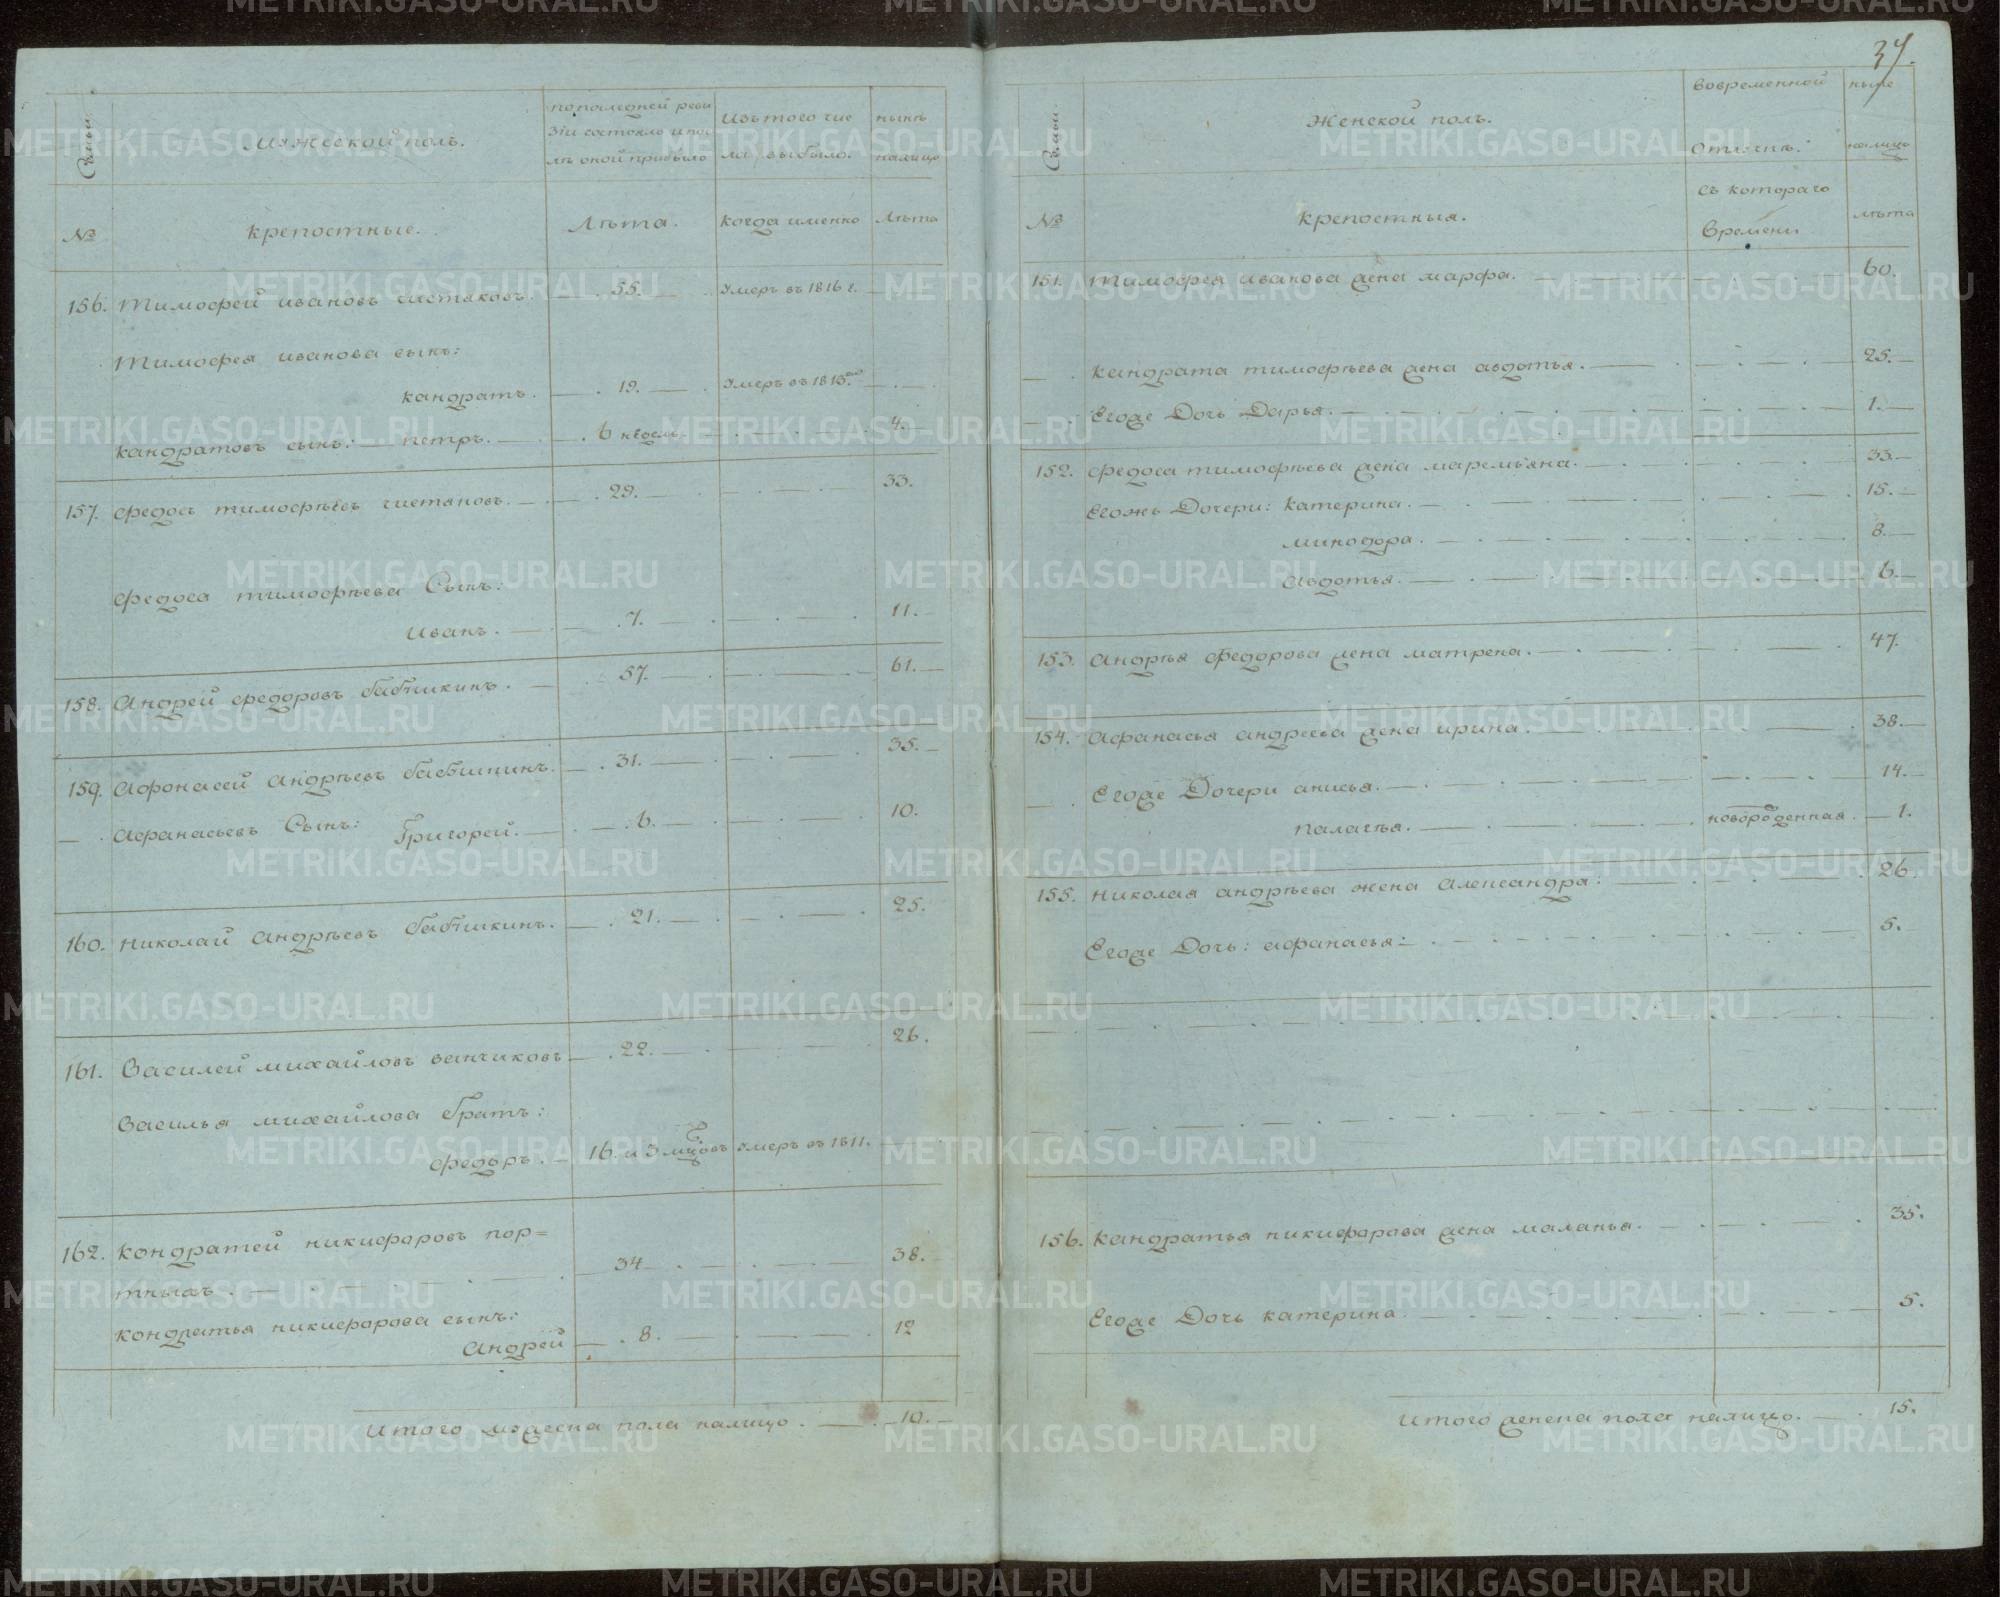 Семьи
Мужеской полъ.
по последней реви
зіи состояло и по
лѣ оной прибыло
Изъ того чис
ла выбыло.
нынѣ
налицо
№
крепостные.
Лѣта.
когда именно
Лѣта
156. Тимофей ивановъ чистяковъ. 55. умеръ въ 1816 г.
Тимофея иванова сынъ:
кандратъ. 19. умеръ въ 1813.
кандратовъ сынъ: петръ. 6 недель. 4.
157. федосъ тимофѣевъ чистяковъ. 29. 33.
федоса тимофѣева Сынъ:
иванъ. 7. 11.
158. Андрей федоровъ бабушкинъ. 57. 61.
159. Афонасей Андрѣевъ бабушкинъ. 31. 35.
Афанасьевъ Сынъ: Григорей. 6. 10.
160. николай Андрѣевъ бабушкинъ. 21. 25.
161. Василей михайловъ венчиковъ 22. 26.
Василья михайлова братъ:
федоръ. 16. и 3 мцовъ умеръ въ 1811.
162. кондратей никифоровъ пор=
тныхъ. 34 38.
кондратья никифорова сынъ:
Андрей 8. 12
Итого мужеска пола налицо. 10.
37.
Семьи
Женской полъ.
вовременной
Отлучкѣ.
ныне
налицо
№
крепостныя.
съ котораго
времени
лѣта
151. Тимофея иванова жена марфа. 60.
кандрата тимофѣева жена авдотья. 25.
Егоже Дочь Дарья. 1.
152. федоса тимофѣева жена маремьяна. 33.
Егожъ Дочери: катерина. 15.
минодора. 8.
авдотья. 6.
153. Андрѣя федорова жена матрена. 47.
154. Афанасья андреева жена ирина. 38.
Егоже Дочери анисья. 14.
палагѣя. новорожденная. 1.
155. николая андрѣева жена Александра: 26.
Егоже Дочь: афанасья: 5.
156. кандратья никифорова жена маланья. 35.
Егоже Дочь катерина. 5.
Итого женска пола налицо. 15.
METRIKI.GASO-URAL.RU